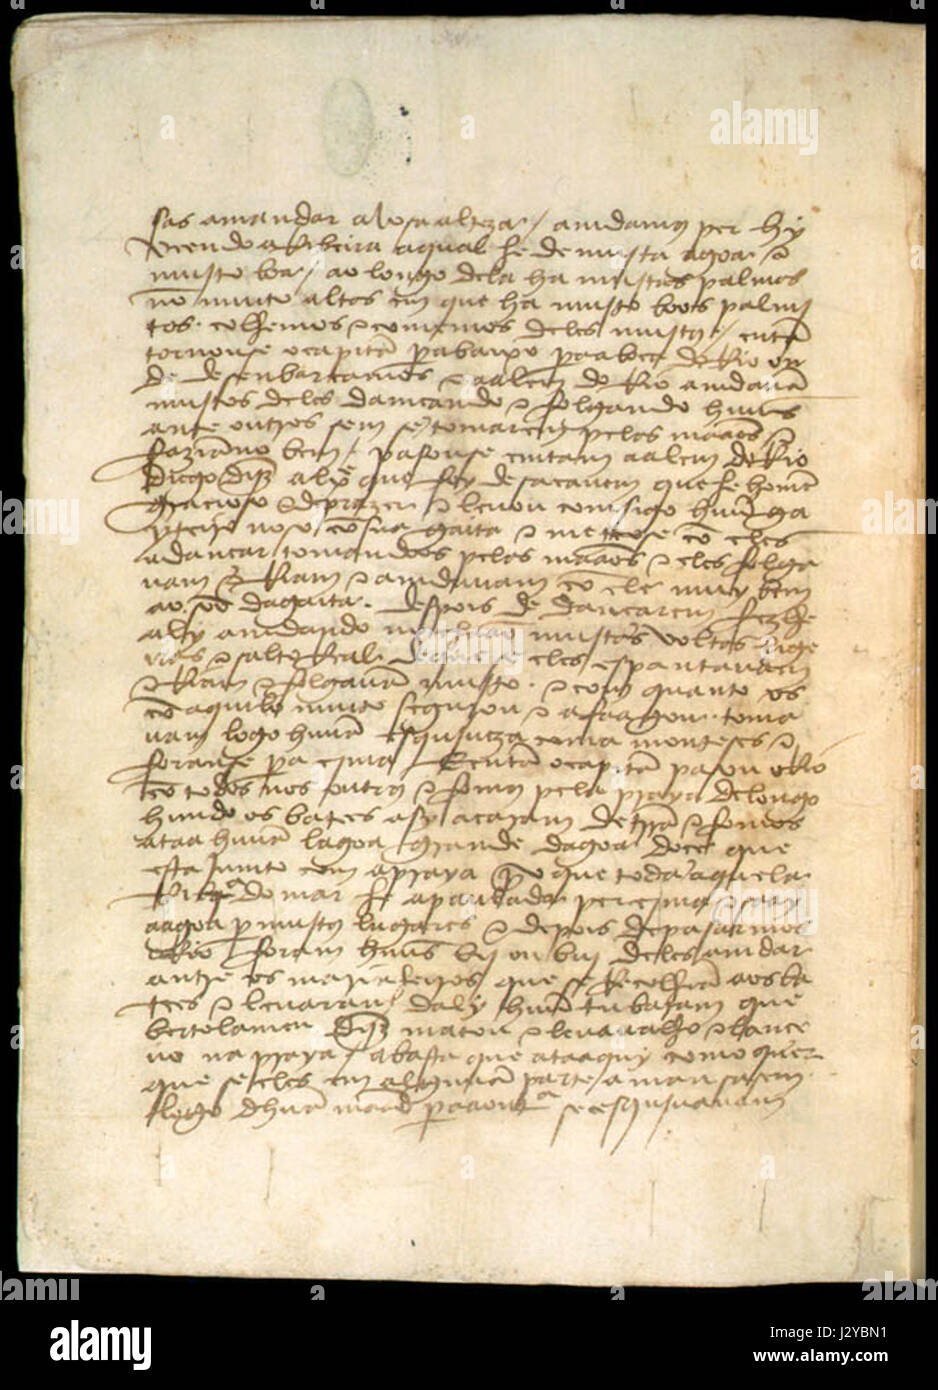 sas amandar a vosa alteza / amdamos per hy
veendo a Ribeira aqual he de mujta agoa e
mujto boa / ao longo dela ha mujtas palmas
nõ muito altas em que ha mujto boos palmj
tos. colhemos e comemos deles mujtos / entã
tornouse o capitã pabaixo paaboca do Rio on
de desenbarcamos e aalem do Rio amdavã
mujtos deles damçando e folgando huũs
ante outros sem se tomarem pelas maãos e
faziãno bem / pasouse emtam aalem do Rio
Diego dijz alxe que foy de sacauem que he homẽ
gracioso e de prazer e leuou comsigo huũ ga
yteiro noso cõ sua gaita e meteose cõ eles
adançar tomandoos pelas maãos e eles folga
uam e Riam e amdauam cõ ele muy bem
ao soõ dagaita. despois de dançarem fezlhe
aly amdando no chaão mujtas voltas lige
iras e salto Real de que se eles espantauam
e Riam e folgauã mujto. e com quanto os
cõ aquilo muito segurou e afaagou. toma
uam logo huũa esqujueza coma monteses e
foranse pa cjma / E entã o capitã pasou o Rio
cõ todos nos outros e fomos pela praya de longo
himdo os batees asy acaram de trã e fomos
ataa huũa lagoa grande dagoa doce que
esta jumto com apraya por que toda aquela
Ribra do mar he apaulada per cjma e saay
aagoa p mujtos lugares e depois depasarmos
o Rio foram huũs bij ou biij deles amdar
antre os marinheiros que se Recolhiã aos ba
tees e leuaram daly huũ tubaram que
bertolameu dijz matou e leuaualho e lanço
uo na praya / abasta que ataaquy como quer
que se eles em alguũa parte amansasem
logo dhuũa maão paa outra se esqujuauam
alamy
Image ID: J2YBN1
www.alamy.com